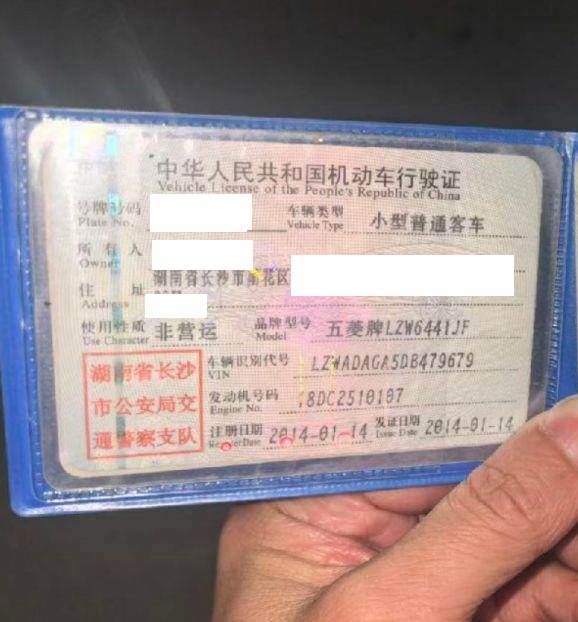 中华人民共和国机动车行驶证
Vehicle License of the People's Republic of China
号牌号码
Plate No.
车辆类型
Vehicle Type
小型普通客车
所有人
Owner
住址
Address
湖南省长沙市雨花区
使用性质
Use Character
非营运
品牌型号
Model
五菱牌LZW6441JF
湖南省长沙
市公安局交
通警察支队
车辆识别代号
VIN
LZWADAGA5DB479679
发动机号码
Engine No.
18DC2510107
注册日期
Register Date
2014-01-14
发证日期
Issue Date
2014-01-14